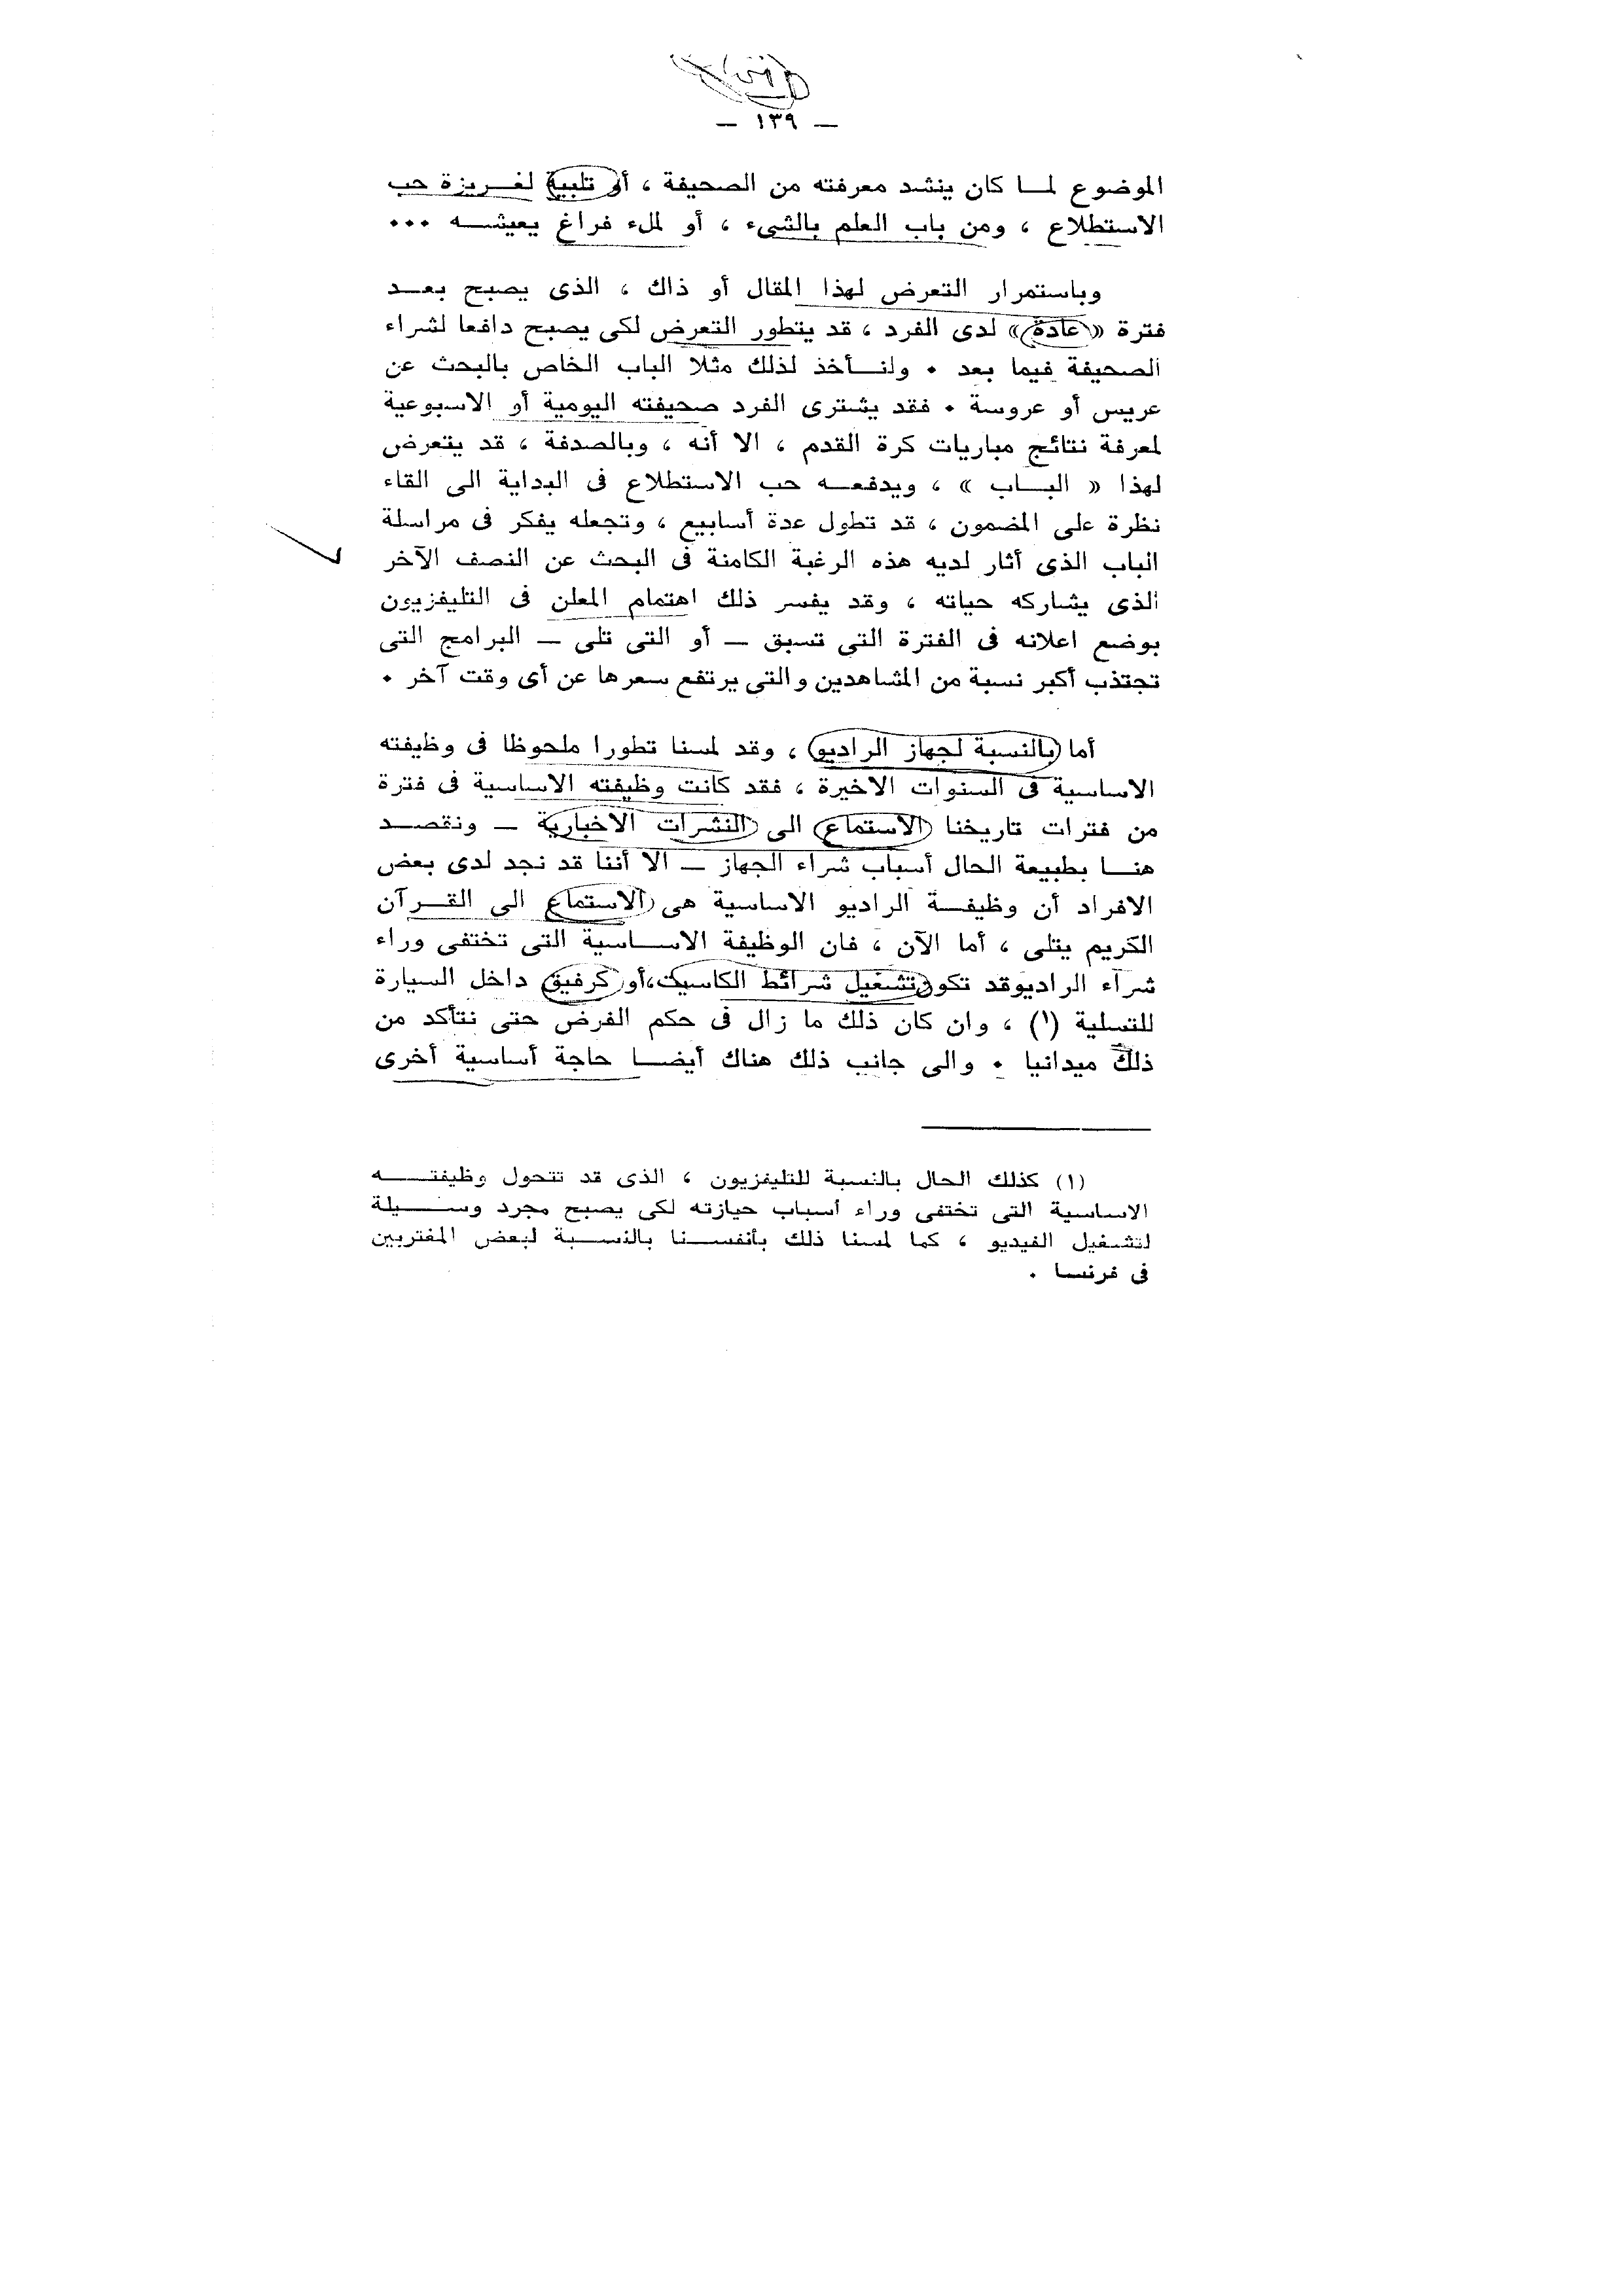 — ١٣٩ —
الموضوع لمــا كان ينشد معرفته من الصحيفة ، أو تلبية لغــريزة حب
الاستطلاع ، ومن باب العلم بالشىء ، أو لملء فراغ يعيشــه ...
وباستمرار التعرض لهذا المقال أو ذاك ، الذى يصبح بعــد
فترة « عادة » لدى الفرد ، قد يتطور التعرض لكى يصبح دافعا لشراء
الصحيفة فيما بعد . ولنــأخذ لذلك مثلا الباب الخاص بالبحث عن
عريس أو عروسة . فقد يشترى الفرد صحيفته اليومية أو الاسبوعية
لمعرفة نتائج مباريات كرة القدم ، الا أنه ، وبالصدفة ، قد يتعرض
لهذا « البــاب » ، ويدفعــه حب الاستطلاع فى البداية الى القاء
نظرة على المضمون ، قد تطول عدة أسابيع ، وتجعله يفكر فى مراسلة
الباب الذى أثار لديه هذه الرغبة الكامنة فى البحث عن النصف الآخر
الذى يشاركه حياته ، وقد يفسر ذلك اهتمام المعلن فى التليفزيون
بوضع اعلانه فى الفترة التى تسبق — أو التى تلى — البرامج التى
تجتذب أكبر نسبة من المشاهدين والتى يرتفع سعرها عن أى وقت آخر .
أما بالنسبة لجهاز الراديو ، وقد لمسنا تطورا ملحوظا فى وظيفته
الاساسية فى السنوات الاخيرة ، فقد كانت وظيفته الاساسية فى فترة
من فترات تاريخنا الاستماع الى النشرات الاخبارية — ونقصــد
هنــا بطبيعة الحال أسباب شراء الجهاز — الا أننا قد نجد لدى بعض
الافراد أن وظيفــة الراديو الاساسية هى الاستماع الى القــرآن
الكريم يتلى ، أما الآن ، فان الوظيفة الاســاسية التى تختفى وراء
شراء الراديو قد تكون تشغيل شرائط الكاسيت ، أو كرفيق داخل السيارة
للتسلية (١) ، وان كان ذلك ما زال فى حكم الفرض حتى نتأكد من
ذلك ميدانيا . والى جانب ذلك هناك أيضــا حاجة أساسية أخرى
(١) كذلك الحال بالنسبة للتليفزيون ، الذى قد تتحول وظيفتــه
الاساسية التى تختفى وراء أسباب حيازته لكى يصبح مجرد وســيلة
لتشغيل الفيديو ، كما لمسنا ذلك بأنفســنا بالنســبة لبعض المغتربين
فى فرنسا .